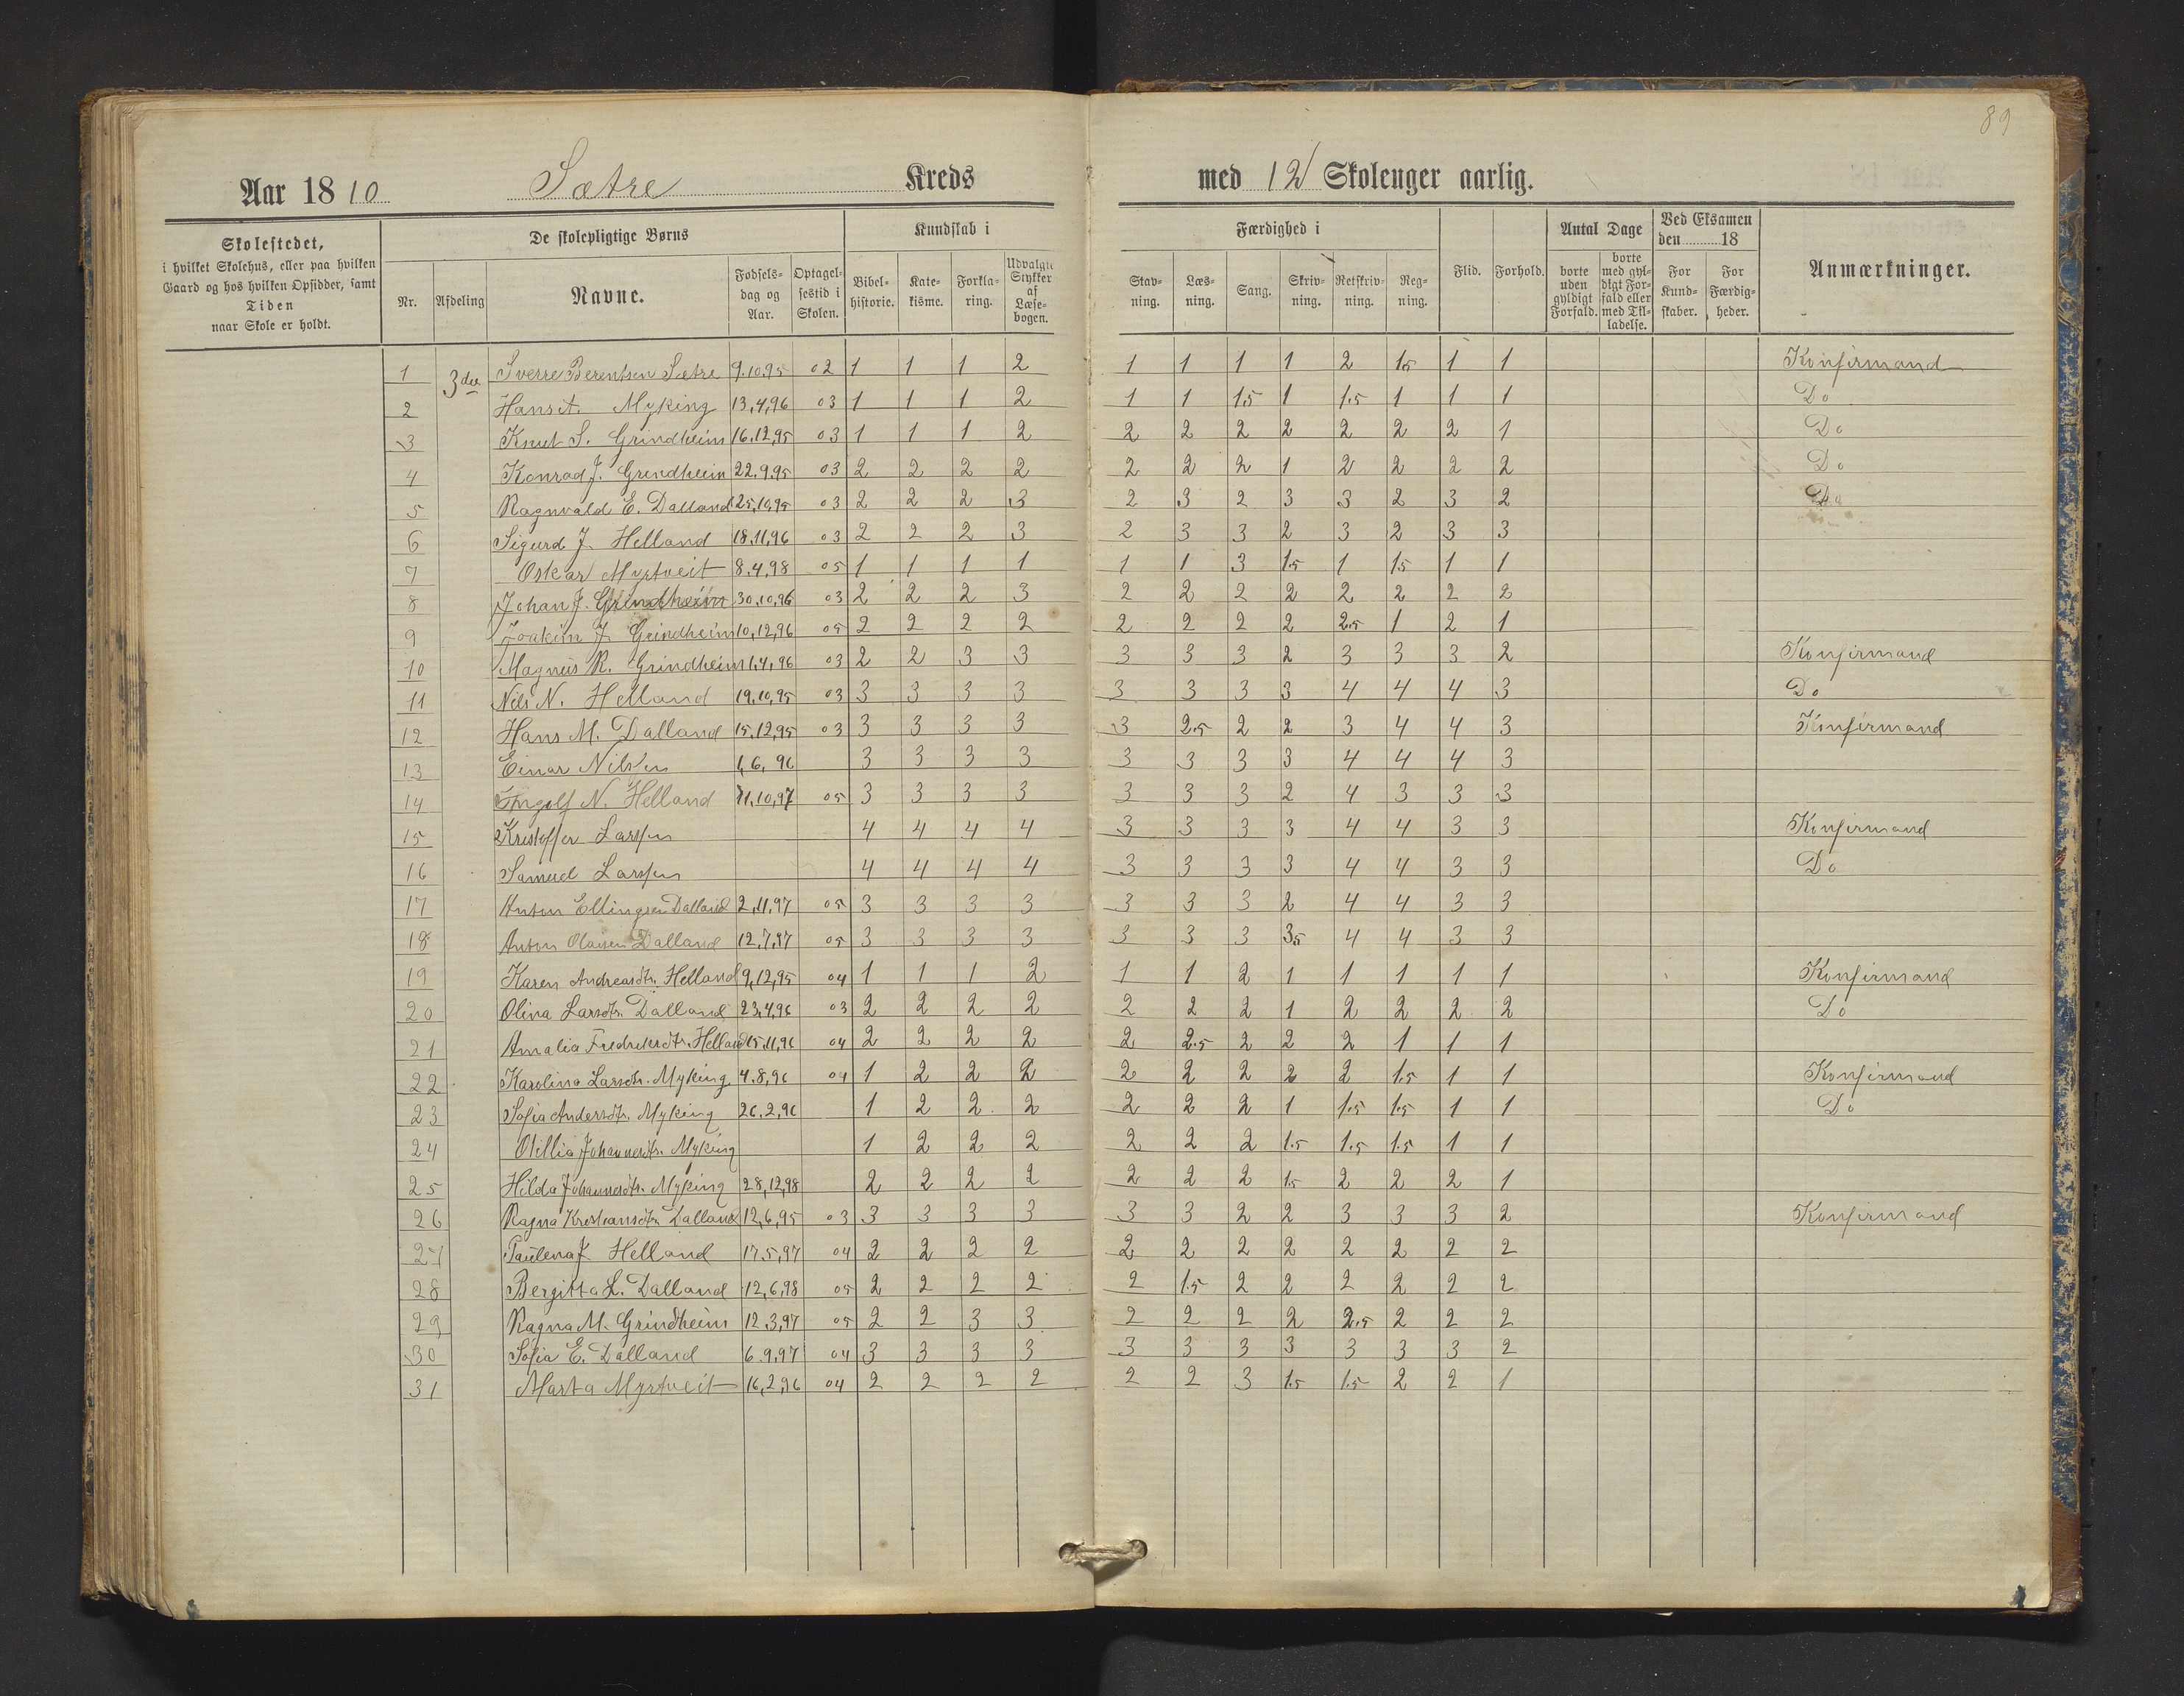 89
Aar 1810 Sætre Kreds med 12 Skoleuger aarlig.
Skolestedet,
i hvilket Skolehus, eller paa hvilken
Gaard og hos hvilken Opsidder, samt
Tiden
naar Skole er holdt.
De skolepligtige Børns
Nr. Afdeling Navne. Fødsels-dag og Aar. Optagel-sestid i Skolen.
Kundskab i
Bibel-historie. Kate-kisme. Forkla-ring. Udvalgte Stykker af Læse-bogen.
Færdighed i
Stav-ning. Læs-ning. Sang. Skriv-ning. Retskriv-ning. Reg-ning.
Flid. Forhold.
Antal Dage
borte uden gyldigt Forfald. borte med gyl-digt For-fald eller med Til-ladelse.
Ved Eksamen den 18
For Kund-skaber. For Færdig-heder.
Anmærkninger.
1 3die Sverre Berentsen Sætre 9.10.95 02 1 1 1 2 1 1 1 1 2 1.5 1 1 Konfirmand
2 Hans A. Myking 13,4,96 03 1 1 1 2 1 1 1.5 1 1.5 1 1 1 Do
3 Knut S. Grindheim 16.12,95 03 1 1 1 2 2 2 2 2 2 2 2 1 Do
4 Konrad J. Grindheim 22.9.95 03 2 2 2 2 2 2 2 1 2 2 2 2 Do
5 Ragnvald E. Dalland 25,10,95 03 2 2 2 3 2 3 2 3 3 2 3 2 Do
6 Sigurd J. Helland 18.11,96 03 2 2 2 3 2 3 3 2 3 2 3 3
7 Oskar Myrtveit 8.4,98 05 1 1 1 1 1 1 3 1.5 1 1.5 1 1
8 Johan J. Grindheim 30,10,96 03 2 2 2 3 2 2 2 2 2 2 2 2
9 Joakim J. Grindheim 10,12,96 05 2 2 2 2 2 2 2 2 2.5 1 2 1
10 Magnus R. Grindheim 1,4,96 03 2 2 3 3 3 3 3 2 3 3 3 2 Konfirmand
11 Nils N. Helland 19,10,95 03 3 3 3 3 3 3 3 3 4 4 4 3 Do
12 Hans M. Dalland 15,12,95 03 3 3 3 3 3 2.5 2 2 3 4 4 3 Konfirmand
13 Einar Nilsen 1,6,96 3 3 3 3 3 3 3 3 4 4 4 3
14 Ingolf N. Helland 11,10,97 05 3 3 3 3 3 3 3 2 4 3 3 3
15 Kristoffer Larssen 4 4 4 4 3 3 3 3 4 4 3 3 Konfirmand
16 Samuel Larssen 4 4 4 4 3 3 3 3 4 4 3 3 Do
17 Anton Ellingsen Dalland 2,11,97 05 3 3 3 3 3 3 3 2 4 4 3 3
18 Anton Olausen Dalland 12,7,97 05 3 3 3 3 3 3 3 3.5 4 4 3 3
19 Karen Andreasdtr. Helland 9,12,95 04 1 1 1 2 1 1 2 1 1 1 1 1 Konfirmand
20 Olina Larsdtr. Dalland 23,4,96 03 2 2 2 2 2 2 2 1 2 2 2 2 Do
21 Amalia Fredriksdtr. Helland 15,11,96 04 2 2 2 2 2 2.5 2 2 2 1 1 1
22 Karolina Larsdtr. Myking 4.8,96 04 1 2 2 2 2 2 2 2 2 1.5 1 1 Konfirmand
23 Sofia Andersdtr. Myking 26,2,96 1 2 2 2 2 2 2 1 1.5 1.5 1 1 Do
24 Otillia Johannesdtr. Myking 1 2 2 2 2 2 2 1.5 1.5 1.5 1 1
25 Hilda Johannesdtr. Myking 28,12,98 2 2 2 2 2 2 2 1.5 2 2 2 1
26 Ragna Kristiansdtr. Dalland 12,6,95 03 3 3 3 3 3 3 2 2 3 3 3 2 Konfirmand
27 Paulena J. Helland 17.5,97 04 2 2 2 2 2 2 2 2 2 2 2 2
28 Bergitta L. Dalland 12,6,98 05 2 2 2 2 2 1.5 2 2 2 2 2 2
29 Ragna M. Grindheim 12.3,97 05 2 2 3 3 2 2 2 2 2.5 2 2 2
30 Sofia E. Dalland 6.9,97 04 3 3 3 3 3 3 3 3 3 3 3 2
31 Marta Myrtveit 16,2,96 04 2 2 2 2 2 2 3 1.5 1.5 2 2 1